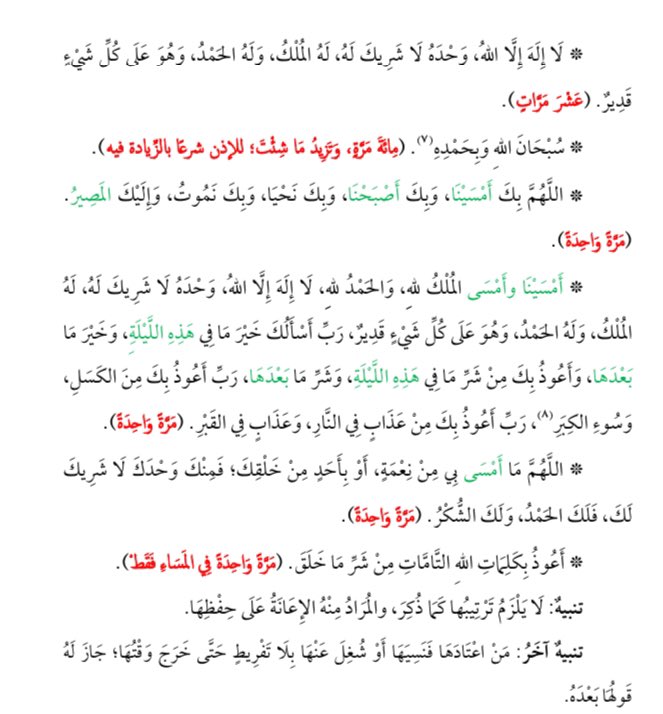 ❊ لَا إِلَهَ إِلَّا اللهُ، وَحْدَهُ لَا شَرِيكَ لَهُ، لَهُ المُلْكُ، وَلَهُ الحَمْدُ، وَهُوَ عَلَى كُلِّ شَيْءٍ
قَدِيرٌ. (عَشْرَ مَرَّاتٍ).
❊ سُبْحَانَ اللهِ وَبِحَمْدِهِ(٧). (مِائَةَ مَرَّةٍ، وَتَزِيدُ مَا شِئْتَ؛ للإذن شرعًا بالزِّيادة فيه).
❊ اللَّهُمَّ بِكَ أَمْسَيْنَا، وَبِكَ أَصْبَحْنَا، وَبِكَ نَحْيَا، وَبِكَ نَمُوتُ، وَإِلَيْكَ المَصِيرُ.
(مَرَّةً وَاحِدَةً).
❊ أَمْسَيْنَا وأَمْسَى المُلْكُ للهِ، وَالحَمْدُ للهِ، لَا إِلَهَ إِلَّا اللهُ، وَحْدَهُ لَا شَرِيكَ لَهُ، لَهُ
المُلْكُ، وَلَهُ الحَمْدُ، وَهُوَ عَلَى كُلِّ شَيْءٍ قَدِيرٌ، رَبِّ أَسْأَلُكَ خَيْرَ مَا فِي هَذِهِ اللَّيْلَةِ، وَخَيْرَ مَا
بَعْدَهَا، وَأَعُوذُ بِكَ مِنْ شَرِّ مَا فِي هَذِهِ اللَّيْلَةِ، وَشَرِّ مَا بَعْدَهَا، رَبِّ أَعُوذُ بِكَ مِنَ الكَسَلِ،
وَسُوءِ الكِبَرِ(٨)، رَبِّ أَعُوذُ بِكَ مِنْ عَذَابٍ فِي النَّارِ، وَعَذَابٍ فِي القَبْرِ. (مَرَّةً وَاحِدَةً).
❊ اللَّهُمَّ مَا أَمْسَى بِي مِنْ نِعْمَةٍ، أَوْ بِأَحَدٍ مِنْ خَلْقِكَ؛ فَمِنْكَ وَحْدَكَ لَا شَرِيكَ
لَكَ، فَلَكَ الحَمْدُ، وَلَكَ الشُّكْرُ. (مَرَّةً وَاحِدَةً).
❊ أَعُوذُ بِكَلِمَاتِ اللهِ التَّامَّاتِ مِنْ شَرِّ مَا خَلَقَ. (مَرَّةً وَاحِدَةً فِي المَسَاءِ فَقَطْ).
تنبيهٌ: لَا يَلْزَمُ تَرْتِيبُها كَمَا ذُكِرَ، والمُرَادُ مِنْهُ الإِعَانَةُ عَلَى حِفْظِهَا.
تنبيهٌ آخَرُ: مَنْ اعْتَادَهَا فَنَسِيَهَا أَوْ شُغِلَ عَنْهَا بِلَا تَفْرِيطٍ حَتَّى خَرَجَ وَقْتُهَا؛ جَازَ لَهُ
قَولُهَا بَعْدَهُ.